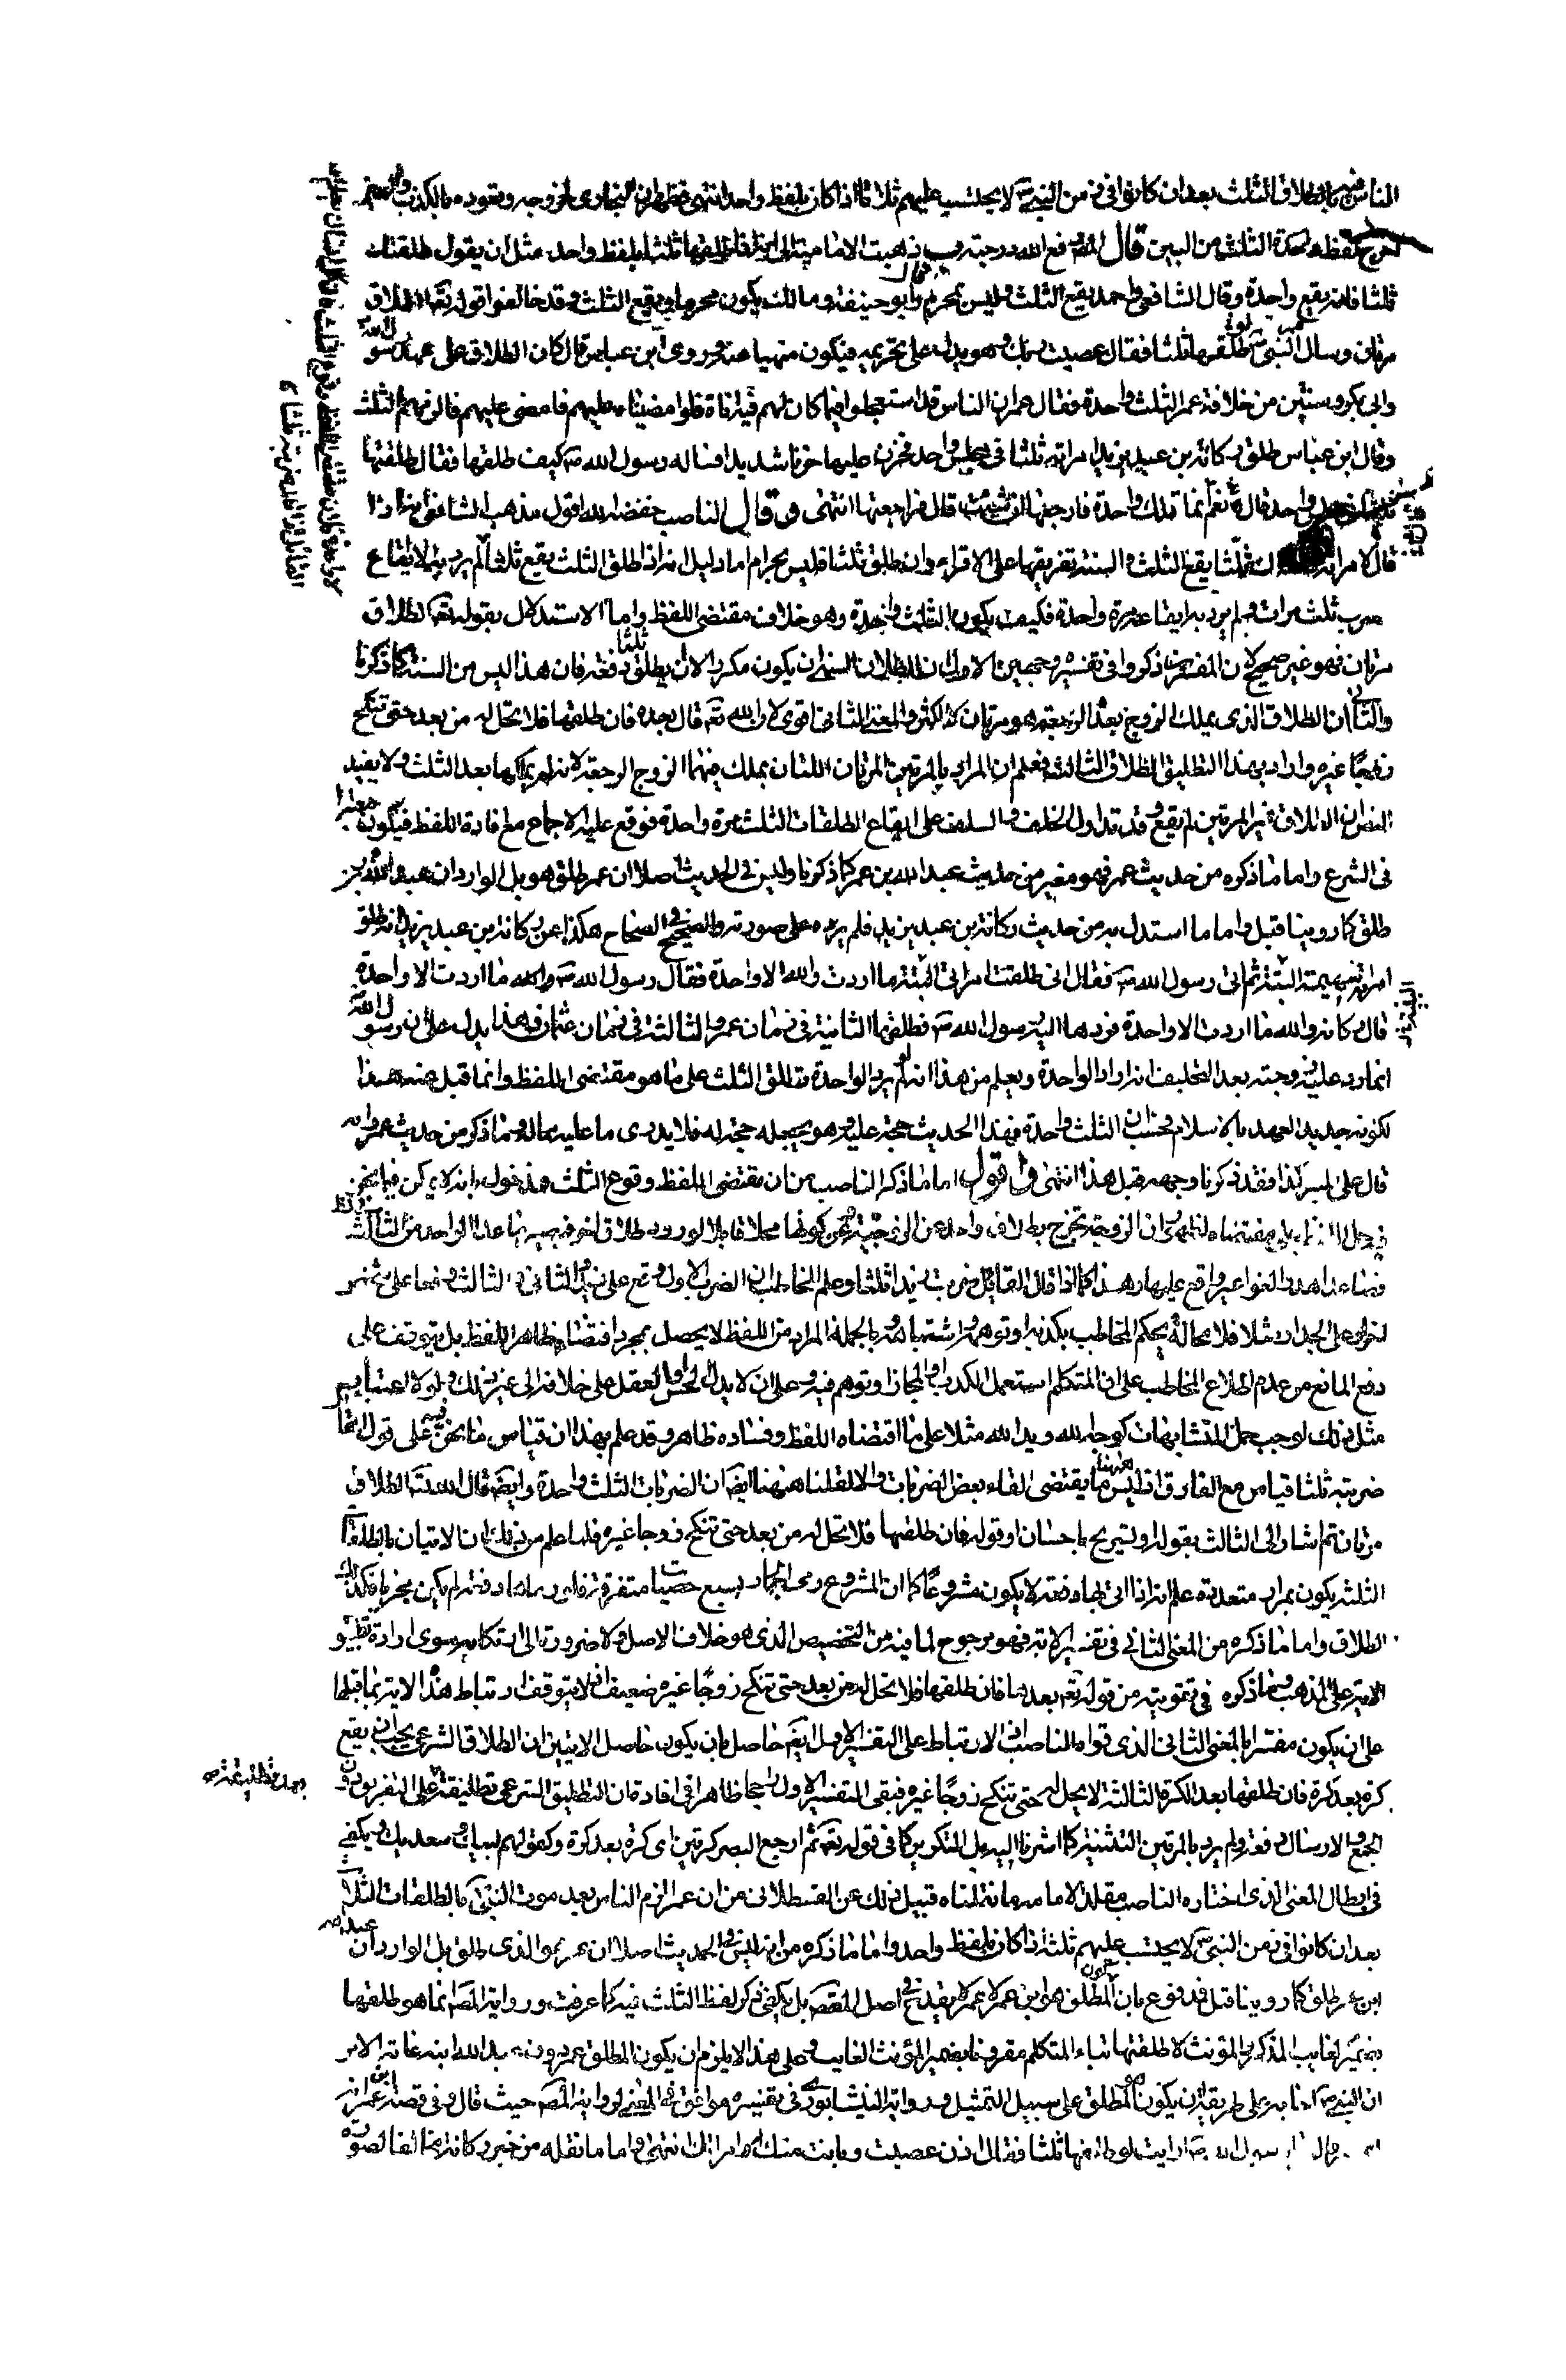 الناس بالطلاق الثلث بعد ان كانوا في زمن النبي ص لا يحتسب عليهم ثلاثا اذا كان بلفظ واحد انتهى
الثلث من البين قال المص رفع الله درجته ذهبت الامامية الى انه اذا طلقها ثلثا بلفظ واحد مثل ان يقول طلقتك
ثلثا فانه يقع واحدة وقال الشافعي واحمد يقع الثلث وليس بمحرم وقال ابو حنيفة ومالك يكون محرما ويقع الثلث وقد خالفوا قوله تعه الطلاق
مرتان وسال النبي ص لو طلقتها ثلثا فقال عصيت ربك وهو يدل على تحريمه فيكون منهيا عنه وروى ابن عباس قال كان الطلاق على عهد رسول الله ص
وابي بكر وسنتين من خلافة عمر الثلث واحدة فقال عمر ان الناس قد استعجلوا فيما كان لهم فيه اناة فلو امضيناه عليهم فامضى عليهم فالزمهم الثلث
وقال ابن عباس طلق ركانة بن عبد يزيد امراته ثلثا في مجلس واحد فحزن عليها حزنا شديدا فساله رسول الله ص كيف طلقتها فقال طلقتها
ثلثا في مجلس واحد قال نعم انما تلك واحدة فارجعها ان شئت قال فراجعتها انتهى وقال الناصب خفضه الله اقول مذهب الشافعي انه اذا
قال لامراته انت ثلثا يقع الثلث والسنة تفريقها على الاقراء وان طلق ثلثا فليس بحرام اما دليل انه اذا طلق الثلث يقع ثلثا لم يرد به الا ايقاع
ثلث مرات ولم يرد به ايقاعه مرة واحدة فكيف يكون الثلث واحدة وهو خلاف مقتضى اللفظ واما الاستدلال بقوله تعه الطلاق
مرتان فهو غير صحيح لان المفسرين ذكروا في تفسيره وجهين الاول ان الطلاق السني ان يكون مكررا لا ان يطلق ثلثا دفعة فان هذا ليس من السنة كما ذكرنا
والثاني ان الطلاق الذي يملك الزوج بعده الرجعة هو مرتان والمعنى الثاني اقوى لان الله تعه قال بعده فان طلقها فلا تحل له من بعد حتى تنكح
زوجا غيره واراد بهذا التطليق الطلاق الثالث فعلم ان المراد بالمرتين المرتان اللتان يملك فيهما الزوج الرجعة لانه لم يملكها بعد الثلث ولا يفيد
النص ان الطلاق غير المرتين لم يقع وقد تداول الخلف والسلف على ايقاع الطلقات الثلث مرة واحدة فوقع عليه الاجماع مع افادة اللفظ فيكون معتبرا
في الشرع واما ما ذكره من حديث عمر فهو مغير من حديث عبد الله بن عمر كما ذكرنا وليس في الحديث اصلا ان عمر طلق هو بل الوارد ان عبد الله بن عمر
طلق كما روينا قبل واما ما استدل به من حديث ركانة بن عبد يزيد فلم يرد على صورته والصحيح في الصحاح هكذا عن ركانة بن عبد يزيد انه طلق
امراته سهيمة البتة ثم اتى رسول الله ص فقال اني طلقت امراتي البتة ما اردت والله الا واحدة فقال رسول الله ص والله ما اردت الا واحدة
قال ركانة والله ما اردت الا واحدة فردها اليه رسول الله ص فطلقها الثانية في زمان عمر والثالثة في زمان عثمان وهذا يدل على ان رسول الله ص
انما رد عليه زوجته بعد التحليف انه اراد الواحدة ويعلم من هذا انه لو لم يرد الواحدة تطلق الثلث على ما هو مقتضى اللفظ وانما قبل منه هذا
لكونه جديد العهد بالاسلام فهذا الحديث حجة عليه وهو يجعله حجة له فلا يدري ما عليه مما له وما ذكر من حديث عمر وانه
قال على المنبر كذا فقد ذكرنا وجهه قبل هذا انتهى واقول اما ما ذكر الناصب من ان مقتضى اللفظ وقوع الثلث فمدخول بانه لا يمكن فيما نحن
فيه حمل اللفظ على مقتضاه لظهور ان الزوجة تخرج بطلاق واحد عن الزوجية وعن كونها محلا قابلا لورود طلاق اخر فيصير ما عدا الواحد من الثالث
على الجدار مثلا فلا محالة يحكم المخاطب بكذبه او توهمه واشتباهه وبالجملة المراد من اللفظ لا يحصل بمجرد اقتضاء ظاهر اللفظ بل يتوقف على
دفع المانع من عدم اطلاع المخاطب على ان المتكلم استعمل الكذب او المجاز او توهم فيه وعلى ان لا يدل الحس او العقل على خلافه الى غير ذلك ولولا اعتبار
مثل ذلك لوجب حمل المتشابهات كوجه الله ويد الله مثلا على ما اقتضاه اللفظ وفساده ظاهر وقد علم بهذا ان قياس ما نحن فيه على قول القائل
ضربته ثلثا قياس مع الفارق اذ ليس ههنا ما يقتضي الغاء بعض الضربات والا لقلنا ههنا ايضا ان الضربات الثلث واحدة وايضا قال الله تعه الطلاق
مرتان ثم اشار الى الثالث بقوله او تسريح باحسان او قوله فان طلقها فلا تحل له من بعد حتى تنكح زوجا غيره فلما علم من ذلك ان الاتيان بالطلقات
الثلث يكون بمرات متعددة علم انه اذا اتى بها دفعة لا يكون مشروعا كما ان المشروع رمي الجمار بسبع حصيات متفرقة فلو رماها دفعة لم يكن مجزيا فكذلك
الطلاق واما ما ذكره من المعنى الثاني في تفسير الاية فهو مرجوح لما فيه من التخصيص الذي هو خلاف الاصل ولا ضرورة الى ارتكابه سوى ارادة تطبيق
الاية على المذهب وما ذكره في تقويته من قوله تعه بعدها فان طلقها فلا تحل له من بعد حتى تنكح زوجا غيره ضعيف اذ لا يتوقف ارتباط هذه الاية بما قبلها
على ان يكون مفسرا بالمعنى الثاني الذي قواه الناصب اذ الارتباط على التفسير الاول ايضا حاصل بان يكون حاصل الايتين ان الطلاق الشرعي يجب ان يقع
كرة بعد كرة فان طلقها بعد الكرة الثالثة لا يحل له حتى تنكح زوجا غيره فبقي التفسير الاول راجحا ظاهرا في افادة ان التطليق الشرعي تطليقة على التفريق دون
الجمع والارسال دفعة ولم يرد بالمرتين التثنية كما اشرنا اليه بل التكرير كما في قوله تعه ثم ارجع البصر كرتين اي كرة بعد كرة وكقولهم لبيك وسعديك ويكفي
في ابطال المعنى الذي اختاره الناصب مقلدا لامامه ما نقلناه قبيل ذلك عن القسطلاني من ان عمر الزم الناس بعد موت النبي ص بالطلقات الثلاث
بعد ان كانوا في زمن النبي ص لا يحتسب عليهم ثلثا اذا كان بلفظ واحد واما ما ذكره من انه ليس في الحديث اصلا ان عمر هو الذي طلق بل الوارد ان عبد الله
ابن عمر طلق كما روينا قبل فمدفوع بان كون المطلق هو ابن عمر لا عمر لا يقدح في اصل المقصد بل يكفي ذكر لفظ الثلث فيه كما عرفت ورواية المص انما هو طلقها
بضمير الغايب المذكر والمؤنث لا طلقتها بتاء المتكلم مقرونا بضمير المؤنث الغايب وعلى هذا لا يلزم ان يكون المطلق عمر دون عبد الله ابنه غاية الامر
ان يكون المطلق على سبيل التمثيل ورواية النيشابوري في تفسيره موافق في المعنى لرواية المص حيث قال وفي قصة ابن عمر انه
قال يا رسول الله ارايت لو طلقتها ثلثا فقال اذن عصيت وبانت منك امراتك انتهى واما ما نقله من خبر ركانة